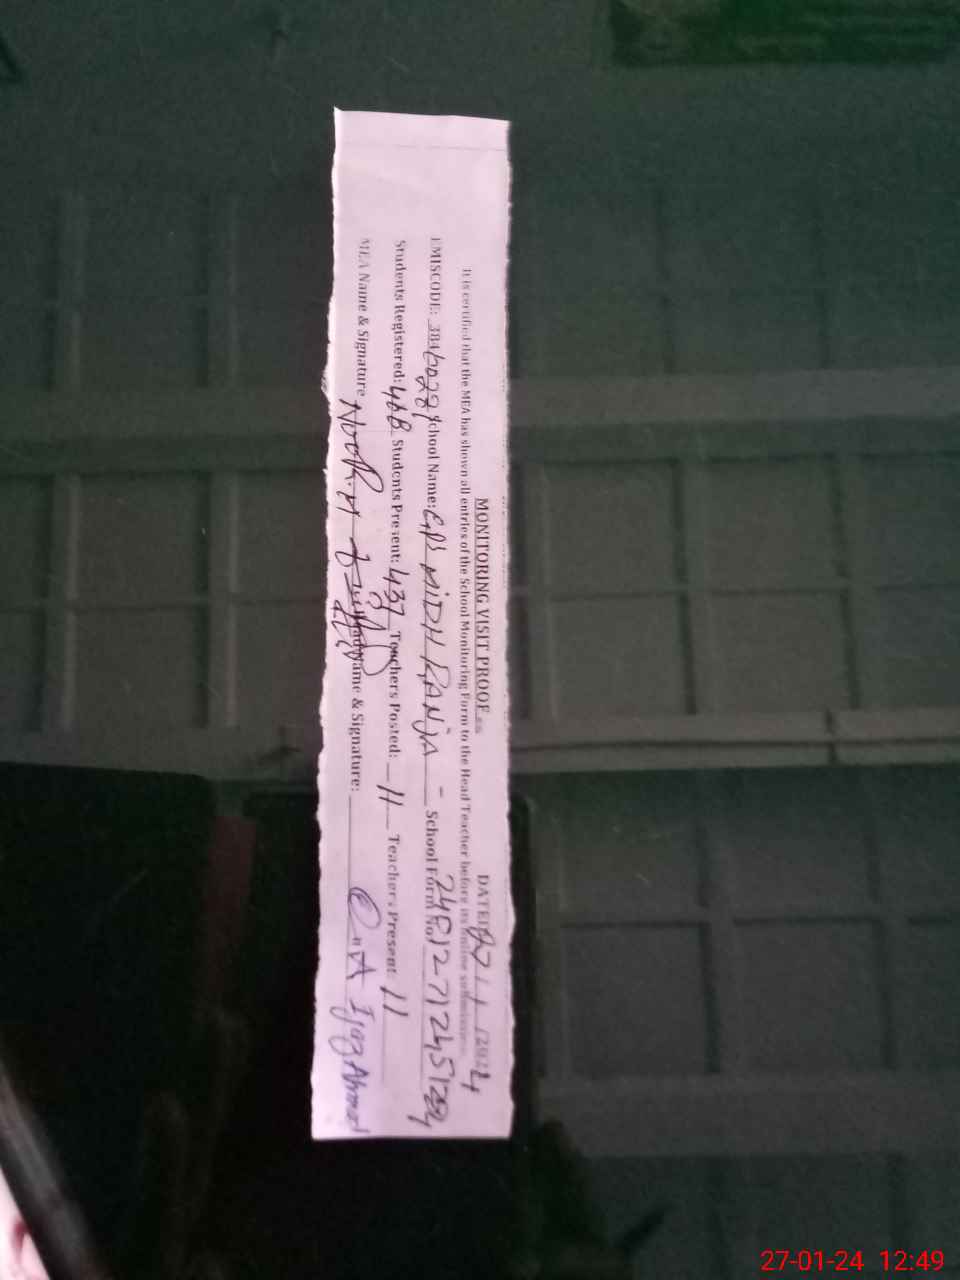 MONITORING VISIT PROOF DATED 27 / 1 / 2024
It is certified that the MEA has shown all entries of the School Monitoring Form to the Head Teacher before its online submission
EMISCODE: School Name: GPS MiDH RANJA - School Form No
Students Registered: Students Present: 437 Teachers Posted: 11 Teachers Present: 11
MEA Name & Signature Noor.M Name & Signature: Ijaz Ahmad
27-01-24 12:49